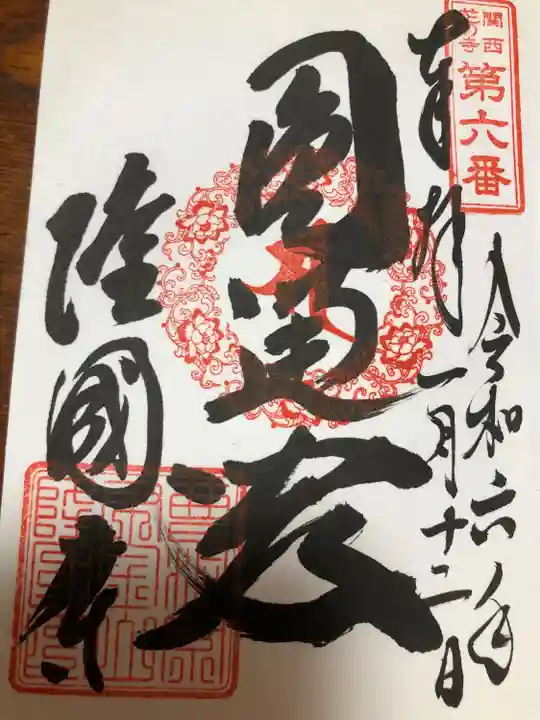 関西
花の寺
第六番
奉拝
令和六年
一月十二日
圓通殿
隆國寺